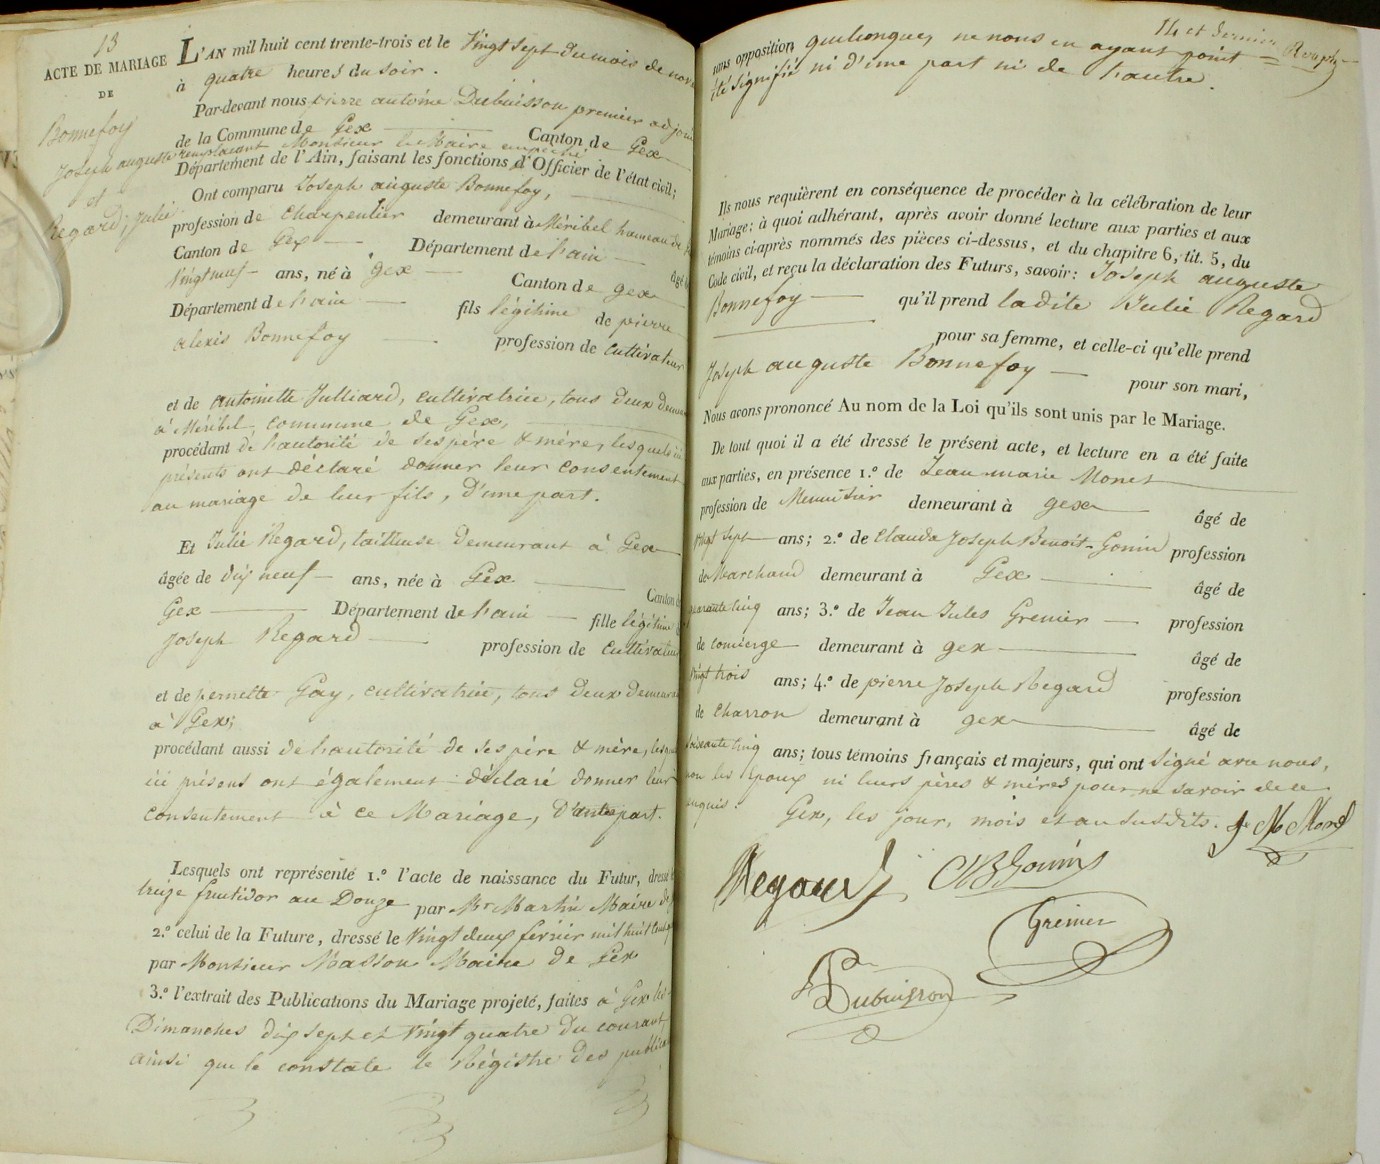 13
ACTE DE MARIAGE
DE
Bonnefoy
Joseph auguste
et
Regard, Julie
L'AN mil huit cent trente-trois et le Vingt sept du mois de nov
à quatre heures du soir.
Par-devant nous pierre antoine Dubuisson premier adjoin
de la Commune de Gex Canton de Gex
remplacant Monsieur le Maire empêché
Département de l'Ain, faisant les fonctions d'Officier de l'état civil;
Ont comparu Joseph auguste Bonnefoy,
profession de Charpentier demeurant à Méribel hameau de
Canton de Gex Département de l'ain âgé
Vingt neuf ans, né à gex Canton de gex
Département de l'ain fils légitime de pierre
alexis Bonnefoy profession de Cultivateur
et de antoinette Julliard, cultivatrice, tous deux demeu
à Méribel, commune de Gex,
procédant de l'autorité de ses père & mère, lesquels ici
présents ont déclaré donner leur consentement
au mariage de leur fils, d'une part.
Et Julie Regard, tailleuse demeurant à Gex
âgée de dix neuf ans, née à Gex Canton de
Gex Département de l'ain fille légitime
Joseph Regard profession de Cultivateu
et de pernette Gay, cultivatrice, tous deux demeura
à Gex;
procédant aussi de l'autorité de ses père & mère, lesque
ici présens ont également déclaré donner leur
consentement à ce Mariage, d'autre part.
Lesquels ont représenté 1.º l'acte de naissance du Futur, dressé
treize fructidor an Douze par Mr Martin Maire de
2.º celui de la Future, dressé le Vingt deux février mil huit cent
par Monsieur Masson Maire de Gex
3.º l'extrait des Publications du Mariage projeté, faites à Gex les
Dimanches dix sept et Vingt quatre du courant
ainsi que le constate le Régistre des publica
14 et dernier
sans opposition quelconque, ne nous en ayant point
été signifié ni d'une part ni de l'autre.
Ils nous requièrent en conséquence de procéder à la célébration de leur
Mariage; à quoi adhérant, après avoir donné lecture aux parties et aux
témoins ci-après nommés des pièces ci-dessus, et du chapitre 6, tit. 5, du
Code civil, et reçu la déclaration des Futurs, savoir: Joseph auguste
Bonnefoy qu'il prend ladite Julie Regard
pour sa femme, et celle-ci qu'elle prend
Joseph auguste Bonnefoy pour son mari,
Nous avons prononcé Au nom de la Loi qu'ils sont unis par le Mariage.
De tout quoi il a été dressé le présent acte, et lecture en a été faite
aux parties, en présence 1.º de Jean marie Monet
profession de Menuisier demeurant à gex âgé de
Vingt sept ans; 2.º de Claude Joseph Benoit Gonin profession
de Marchand demeurant à Gex âgé de
quarante cinq ans; 3.º de Jean Jules Grenier profession
de concierge demeurant à gex âgé de
vingt trois ans; 4.º de pierre Joseph Regard profession
de Charron demeurant à gex âgé de
soixante cinq ans; tous témoins français et majeurs, qui ont signé avec nous,
non les époux ni leurs pères & mères pour ne savoir de ce
enquis. Gex, les jour, mois et an susdits. J M Monet
Regard CJB Gonin
Grenier
Dubuisson